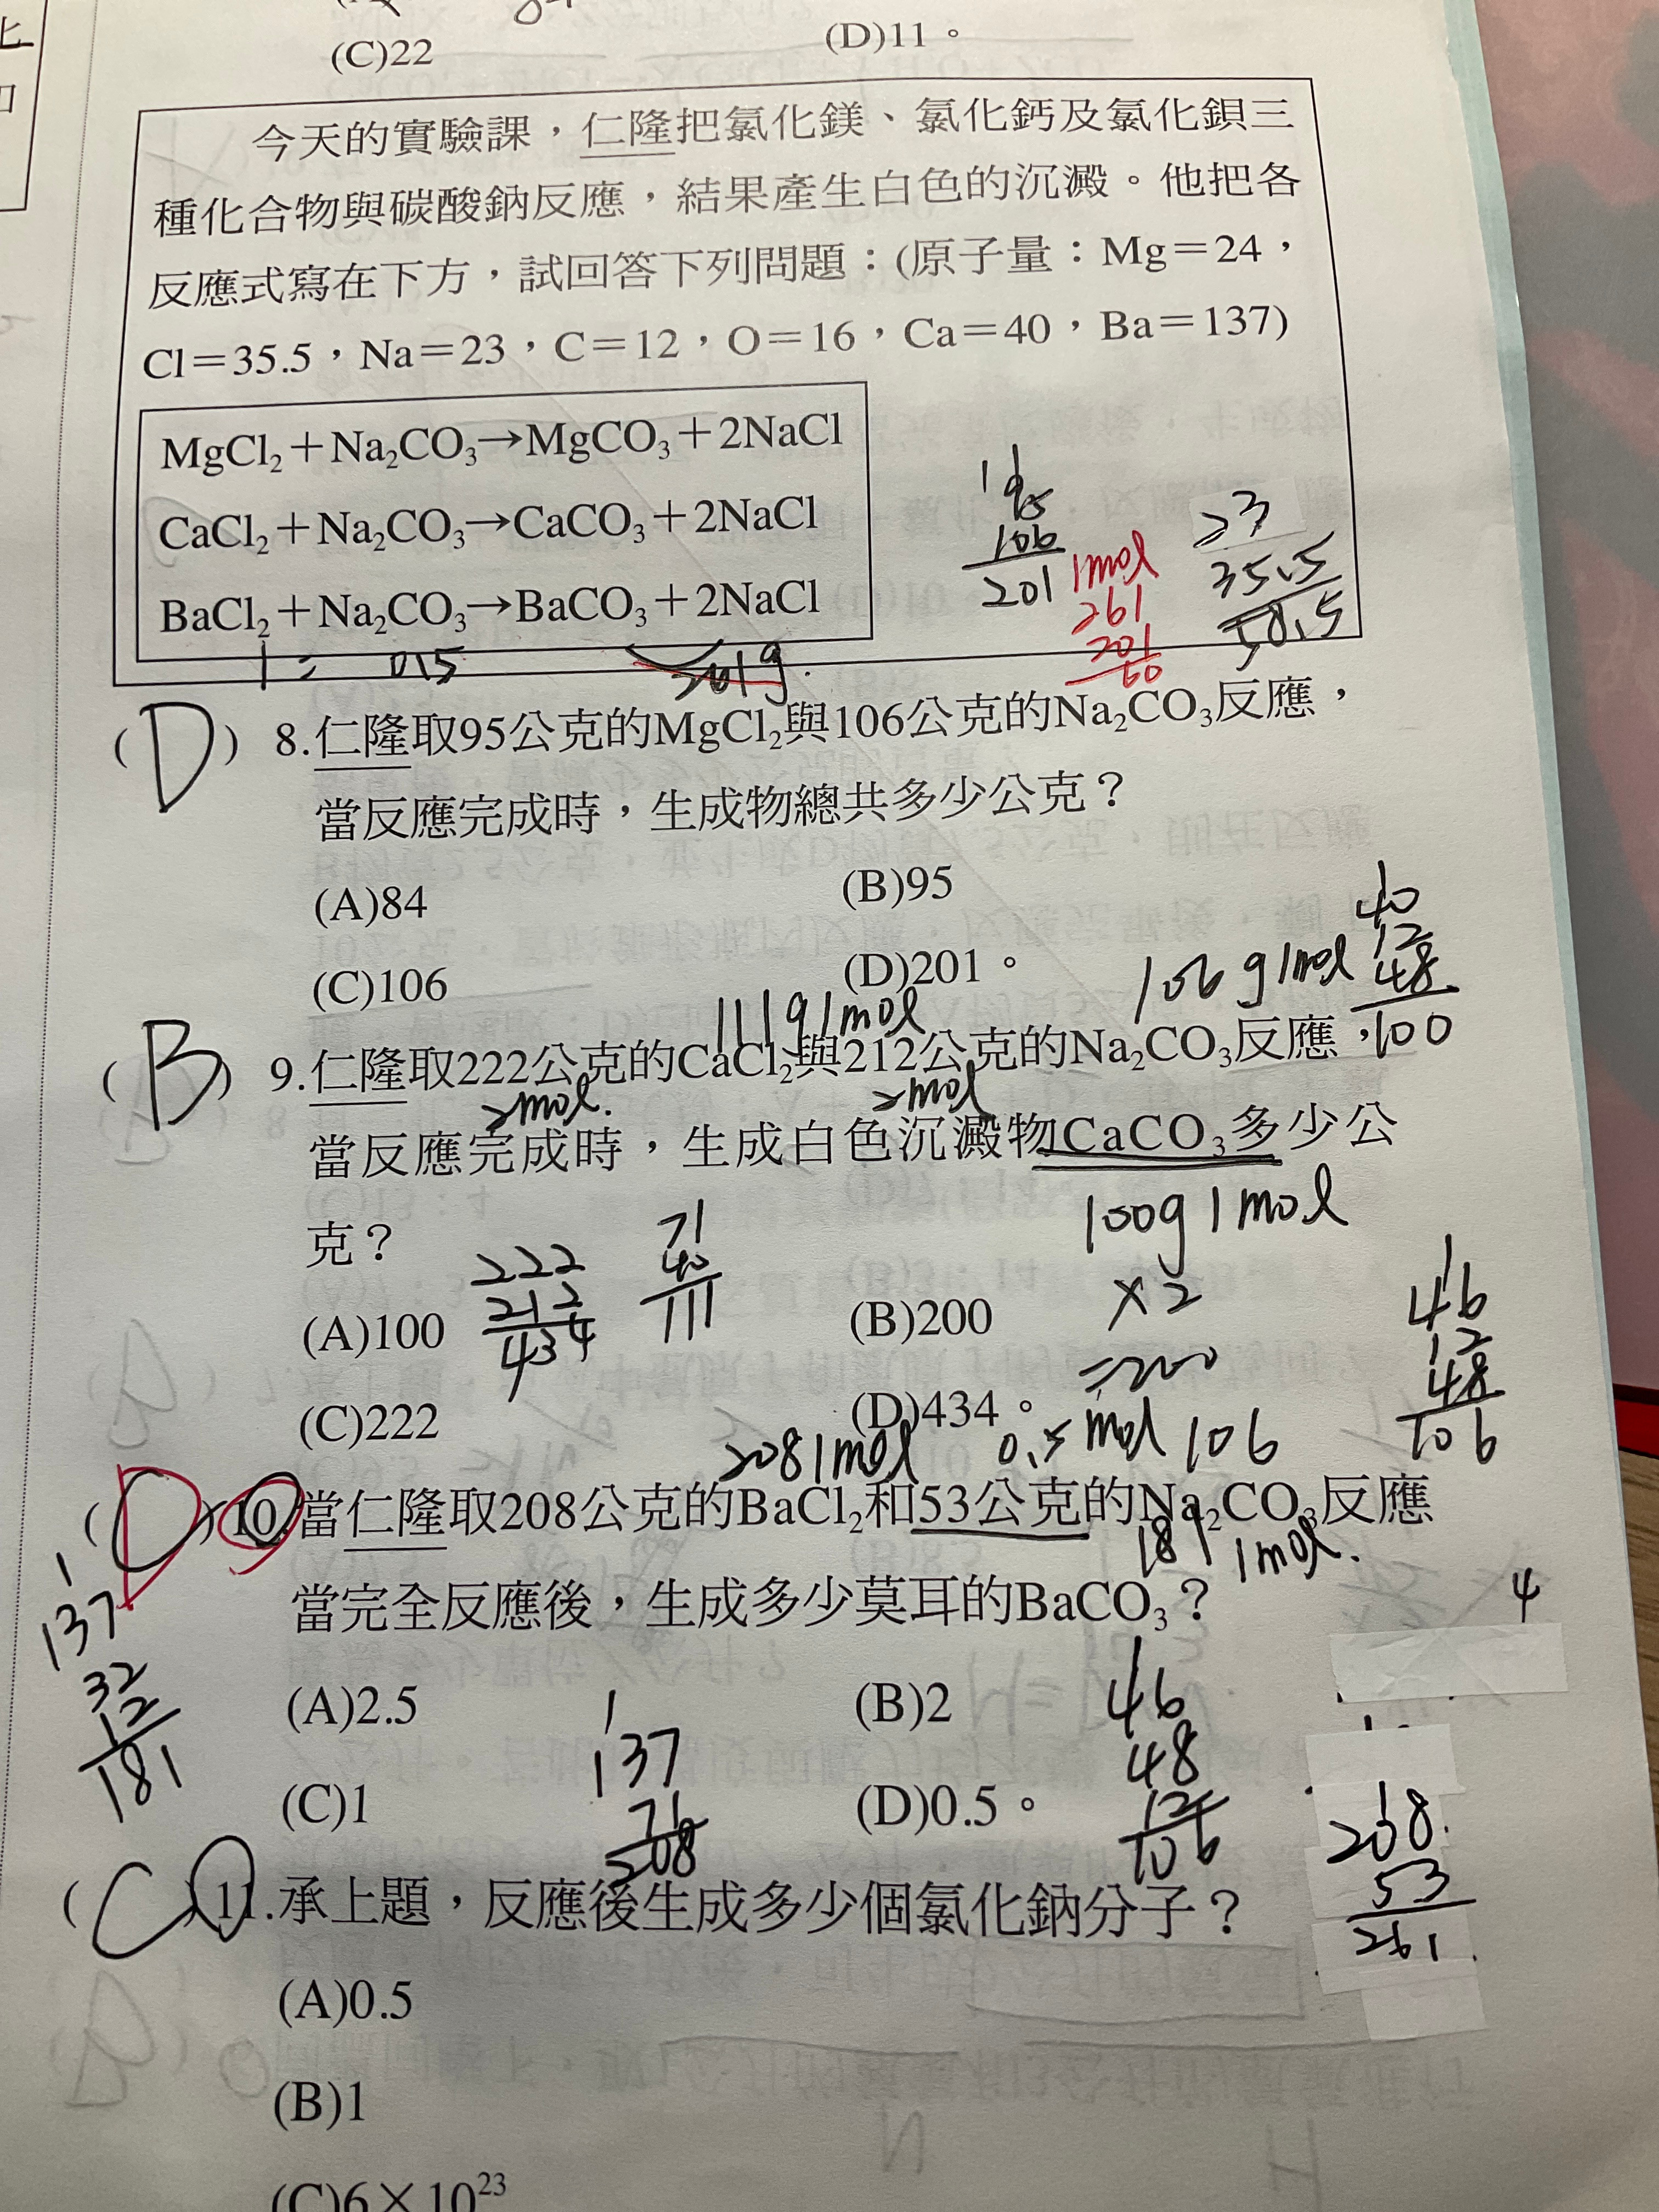 (C)22
(D)11。
今天的實驗課,仁隆把氯化鎂、氯化鈣及氯化鋇三
種化合物與碳酸鈉反應,結果產生白色的沉澱。他把各
反應式寫在下方,試回答下列問題:(原子量:Mg=24,
Cl=35.5,Na=23,C=12,O=16,Ca=40,Ba=137)
MgCl₂+Na₂CO₃→MgCO₃+2NaCl
CaCl₂+Na₂CO₃→CaCO₃+2NaCl
BaCl₂+Na₂CO₃→BaCO₃+2NaCl
1
95
106
201
1mol
261
201
60
23
35.5
58.5
0.5
201g.
(D) 8.仁隆取95公克的MgCl₂與106公克的Na₂CO₃反應,
當反應完成時,生成物總共多少公克?
(A)84
(B)95
(C)106
(D)201。
111g1mol
106g1mol
40
12
48
100
(B) 9.仁隆取222公克的CaCl₂與212公克的Na₂CO₃反應,
2mol.
2mol
當反應完成時,生成白色沉澱物CaCO₃多少公
克?
100g1mol
×2
=200
222
212
434
71
40
111
(A)100
(B)200
(C)222
(D)434。
1
46
12
48
106
208 1mol
0.5 mol 106
(D) 10.當仁隆取208公克的BaCl₂和53公克的Na₂CO₃反應
181 1mol.
當完全反應後,生成多少莫耳的BaCO₃?
1
137
32
12
181
4
(A)2.5
(B)2
(C)1
(D)0.5。
1
137
71
208
1
46
48
12
106
208.
53
261.
(C) 11.承上題,反應後生成多少個氯化鈉分子?
(A)0.5
(B)1
(C)6×10²³